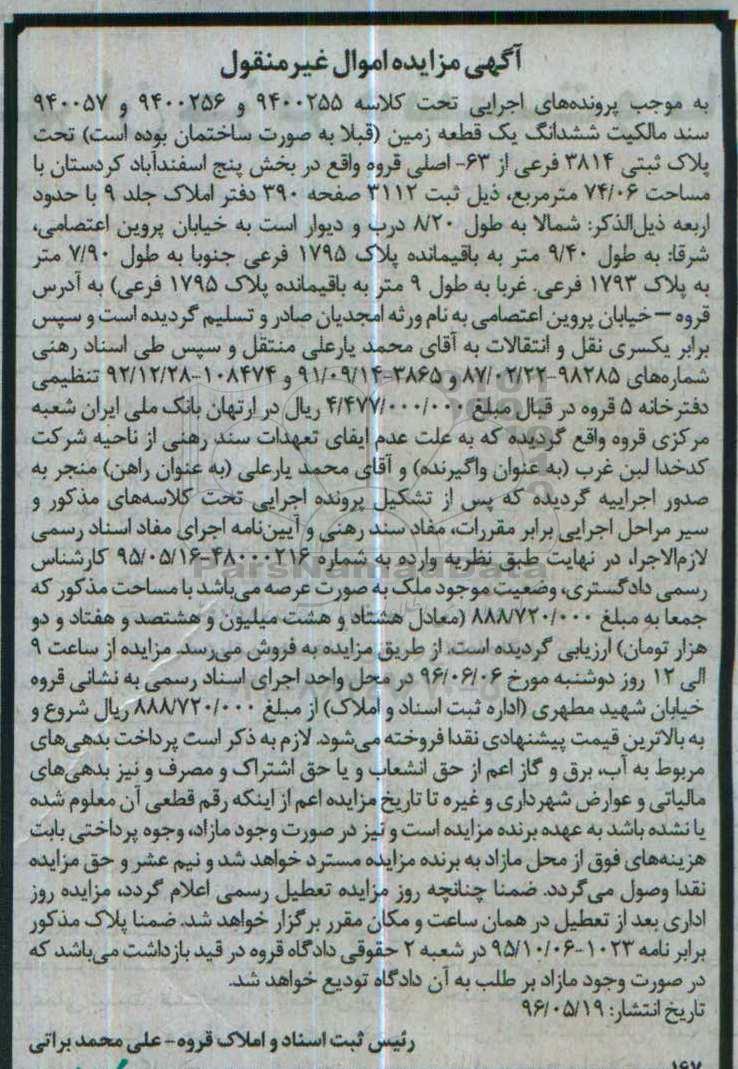 آگهی مزایده اموال غیر منقول
به موجب پرونده‌های اجرایی تحت کلاسه ۹۴۰۰۲۵۵ و ۹۴۰۰۲۵۶ و ۹۴۰۰۵۷
سند مالکیت ششدانگ یک قطعه زمین (قبلا به صورت ساختمان بوده است) تحت
پلاک ثبتی ۳۸۱۴ فرعی از ۶۳- اصلی قروه واقع در بخش پنج اسفندآباد کردستان با
مساحت ۷۴/۰۶ مترمربع، ذیل ثبت ۳۱۱۲ صفحه ۳۹۰ دفتر املاک جلد ۹ با حدود
اربعه ذیل‌الذکر: شمالا به طول ۸/۲۰ درب و دیوار است به خیابان پروین اعتصامی،
شرقا: به طول ۹/۴۰ متر به باقیمانده پلاک ۱۷۹۵ فرعی جنوبا به طول ۷/۹۰ متر
به پلاک ۱۷۹۳ فرعی. غربا به طول ۹ متر به باقیمانده پلاک ۱۷۹۵ فرعی) به آدرس
قروه – خیابان پروین اعتصامی به نام ورثه امجدیان صادر و تسلیم گردیده است و سپس
برابر یکسری نقل و انتقالات به آقای محمد یارعلی منتقل و سپس طی اسناد رهنی
شماره‌های ۹۸۲۸۵-۸۷/۰۲/۲۲ و ۳۸۶۵-۹۱/۰۹/۱۴ و ۱۰۸۴۷۴-۹۲/۱۲/۲۸ تنظیمی
دفترخانه ۵ قروه در قبال مبلغ ۴/۴۷۷/۰۰۰/۰۰۰ ریال در ارتهان بانک ملی ایران شعبه
مرکزی قروه واقع گردیده که به علت عدم ایفای تعهدات سند رهنی از ناحیه شرکت
کدخدا لبن غرب (به عنوان واگیرنده) و آقای محمد یارعلی (به عنوان راهن) منجر به
صدور اجراییه گردیده که پس از تشکیل پرونده اجرایی تحت کلاسه‌های مذکور و
سیر مراحل اجرایی برابر مقررات، مفاد سند رهنی و آیین‌نامه اجرای مفاد اسناد رسمی
لازم‌الاجرا، در نهایت طبق نظریه وارده به شماره ۴۸۰۰۰۲۱۶-۹۵/۰۵/۱۶ کارشناس
رسمی دادگستری، وضعیت موجود ملک به صورت عرصه می‌باشد با مساحت مذکور که
جمعا به مبلغ ۸۸۸/۷۲۰/۰۰۰ (معادل هشتاد و هشت میلیون و هشتصد و هفتاد و دو
هزار تومان) ارزیابی گردیده است. از طریق مزایده به فروش می‌رسد. مزایده از ساعت ۹
الی ۱۲ روز دوشنبه مورخ ۹۶/۰۶/۰۶ در محل واحد اجرای اسناد رسمی به نشانی قروه
خیابان شهید مطهری (اداره ثبت اسناد و املاک) از مبلغ ۸۸۸/۷۲۰/۰۰۰ ریال شروع و
به بالاترین قیمت پیشنهادی نقدا فروخته می‌شود. لازم به ذکر است پرداخت بدهی‌های
مربوط به آب، برق و گاز اعم از حق انشعاب و یا حق اشتراک و مصرف و نیز بدهی‌های
مالیاتی و عوارض شهرداری و غیره تا تاریخ مزایده اعم از اینکه رقم قطعی آن معلوم شده
یا نشده باشد به عهده برنده مزایده است و نیز در صورت وجود مازاد، وجوه پرداختی بابت
هزینه‌های فوق از محل مازاد به برنده مزایده مسترد خواهد شد و نیم عشر و حق مزایده
نقدا وصول می‌گردد. ضمنا چنانچه روز مزایده تعطیل رسمی اعلام گردد، مزایده روز
اداری بعد از تعطیل در همان ساعت و مکان مقرر برگزار خواهد شد. ضمنا پلاک مذکور
برابر نامه ۱۰۲۳-۹۵/۱۰/۰۶ در شعبه ۲ حقوقی دادگاه قروه در قید بازداشت می‌باشد که
در صورت وجود مازاد بر طلب به آن دادگاه تودیع خواهد شد.
تاریخ انتشار: ۹۶/۰۵/۱۹
رئیس ثبت اسناد و املاک قروه - علی محمد براتی
ParsNamadData